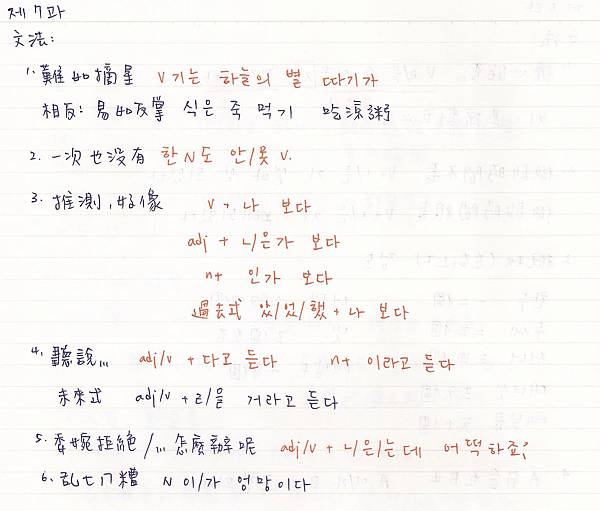 제 7 과
文法:
1. 難如摘星 V 기는 하늘의 별 따기가
相反: 易如反掌 식은 죽 먹기 吃涼粥
2. 一次也沒有 한 N도 안/못 V.
3. 推測, 好像 V + 나 보다
adj + ㄴ/은가 보다
n+ 인가 보다
過去式 았/었/했 + 나 보다
4. 聽說... adj/v + 다고 듣다 n+ 이라고 듣다
未來式 adj/v + ㄹ/을 거라고 듣다
5. 委婉拒絕/... 怎麼辦呢 adj/v + ㄴ/은/는데 어떡하죠?
6. 乱七八糟 N 이/가 엉망이다